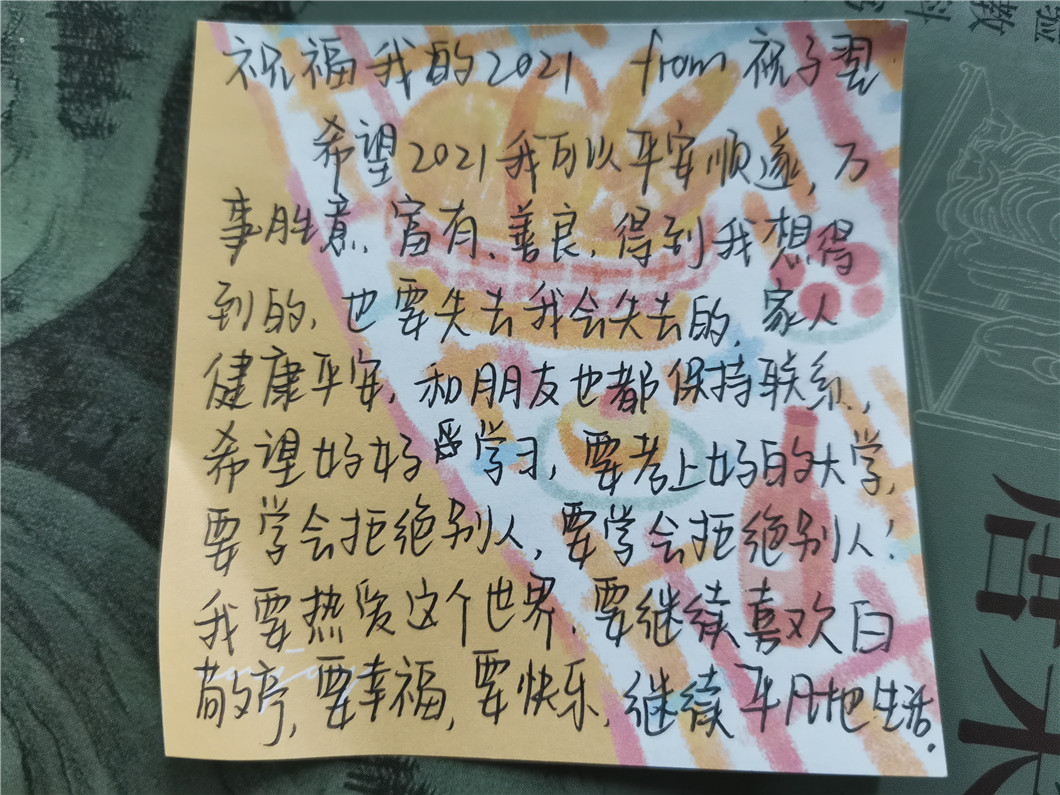 祝福我的2021 from 祝子翌
希望2021我可以平安顺遂,万
事胜意,富有、善良,得到我想得
到的,也要失去我会失去的,家人
健康平安,和朋友也都保持联系,
希望好好学习,要考上好的大学,
要学会拒绝别人,要学会拒绝别人!
我要热爱这个世界,要继续喜欢白
敬亭,要幸福,要快乐,继续平凡地生活.